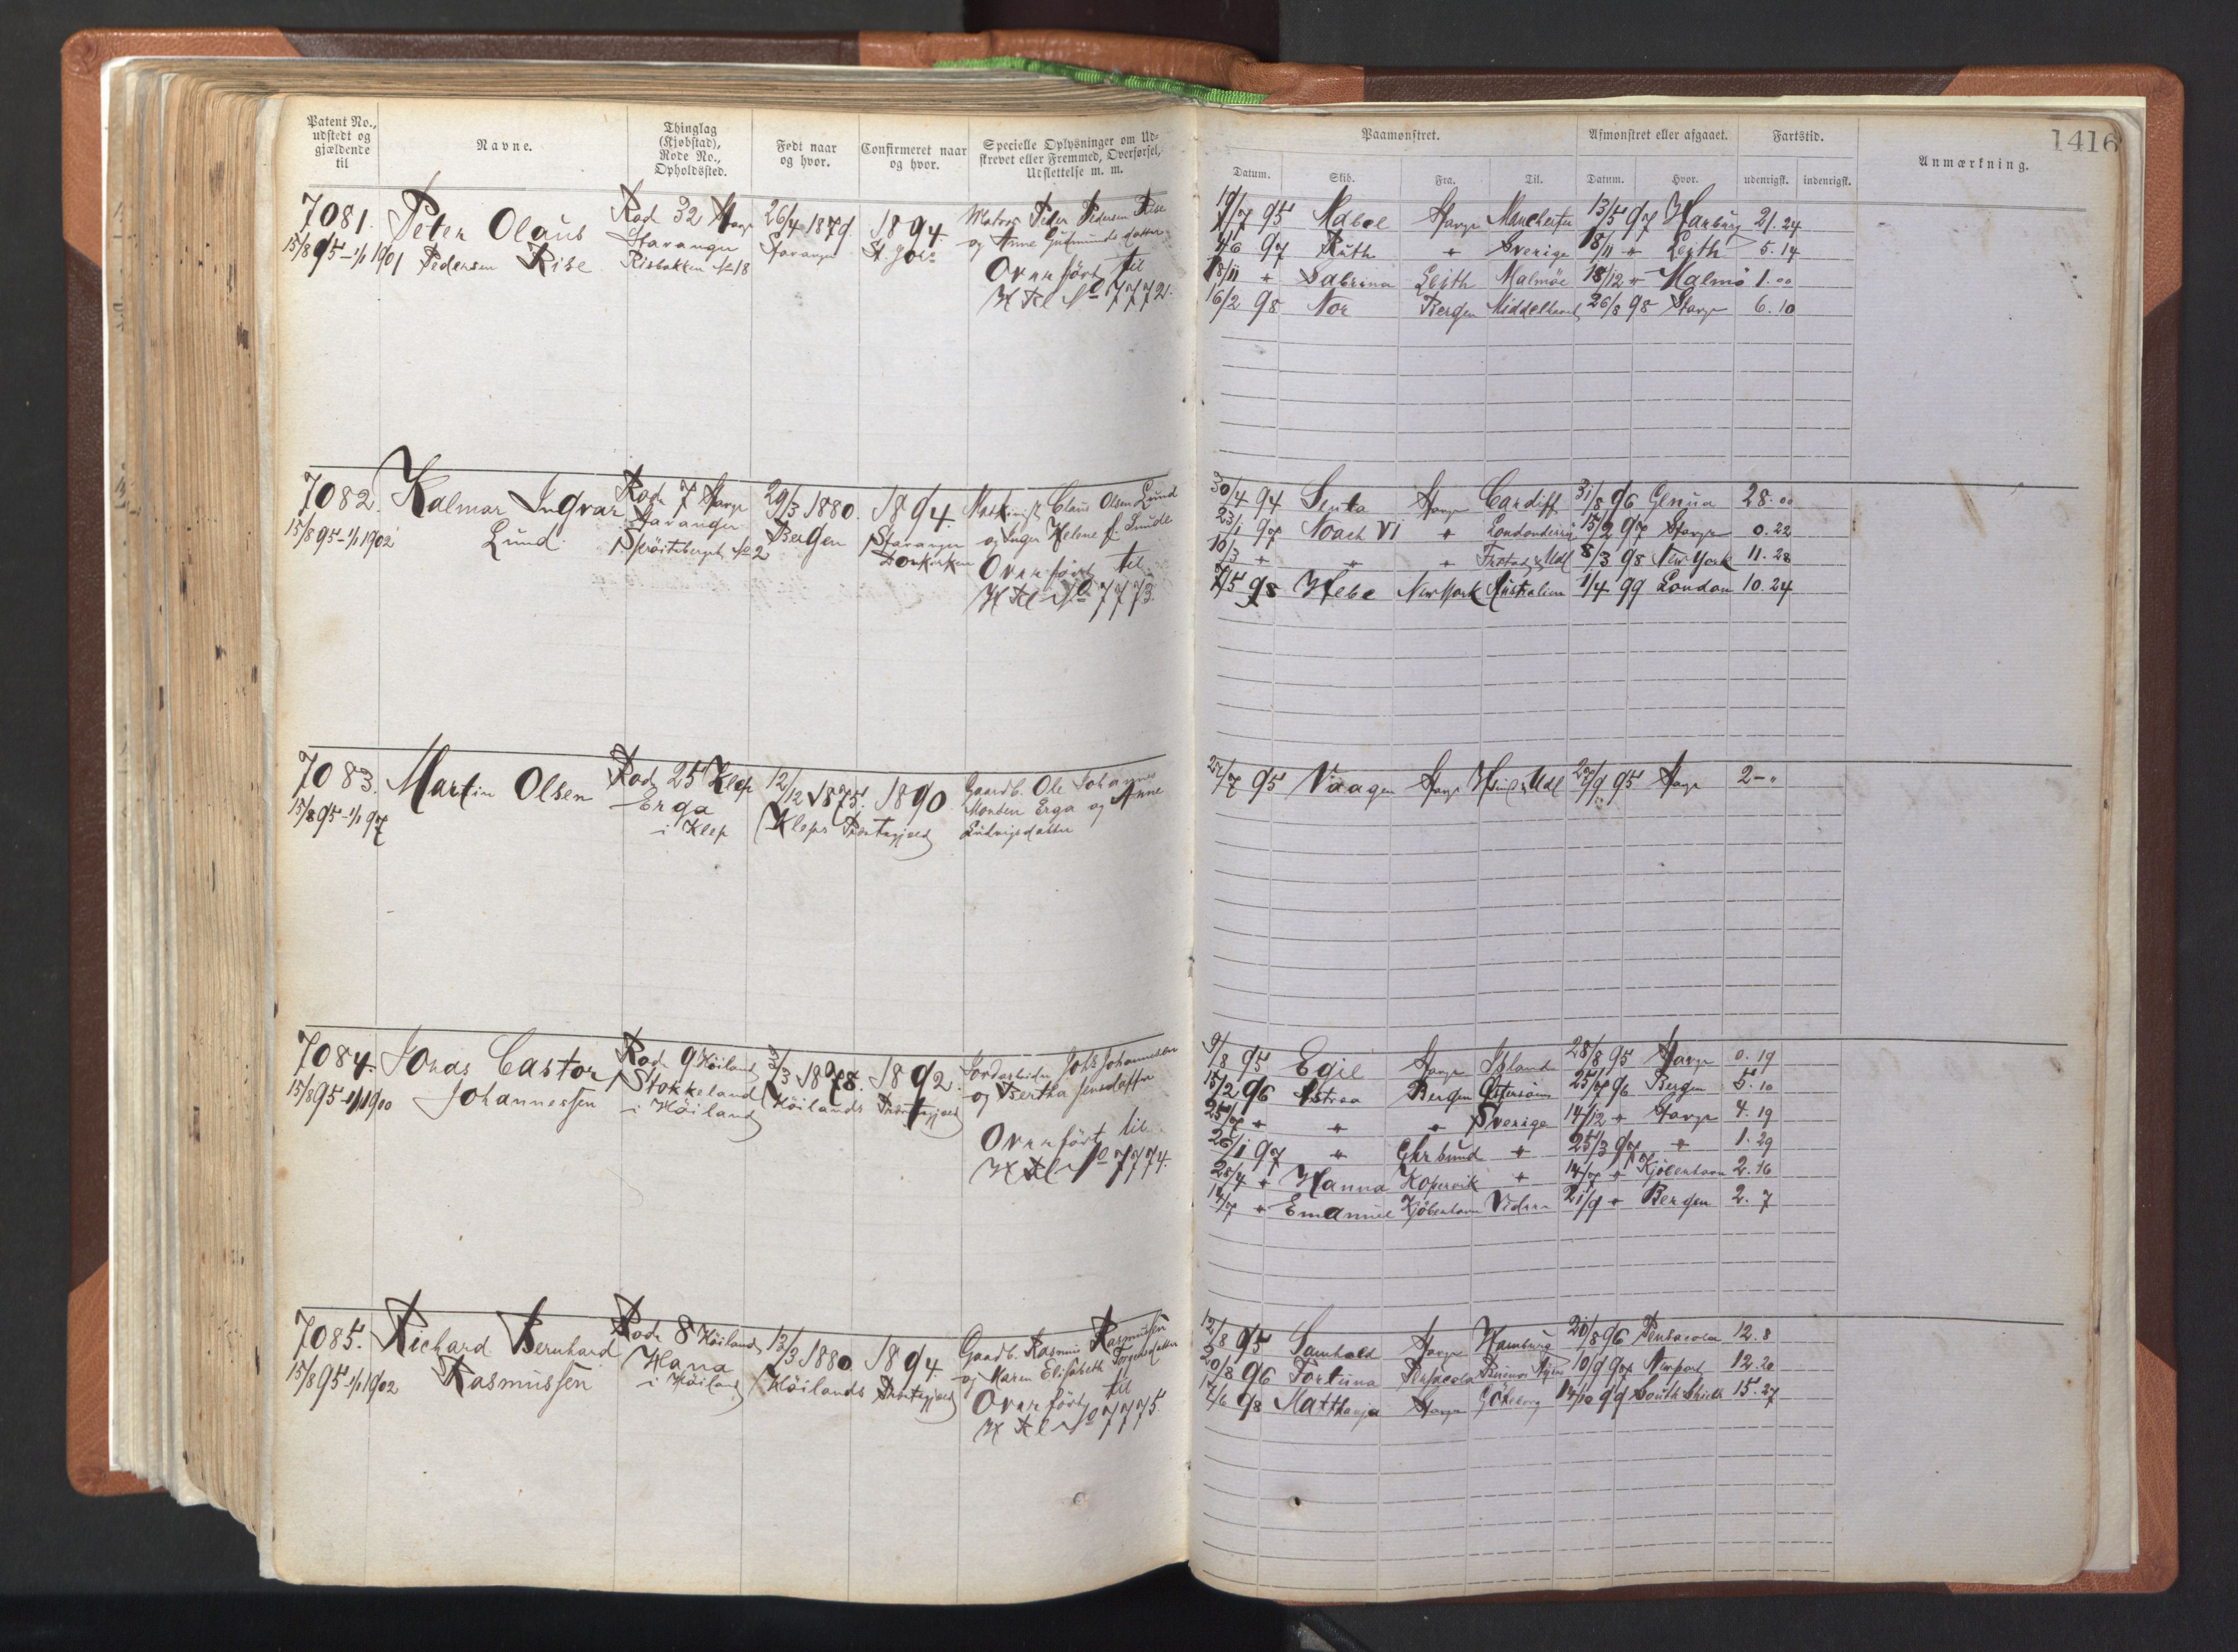 Patent No., udstedt og gjældende til
Navne.
Thinglag (Kjøbstad), Rode No., Opholdssted.
Født naar og hvor.
Confirmeret naar og hvor.
Specielle Oplysninger om Udskrevet eller Fremmed, Overførsel, Udslettelse m. m.
Paamønstret.
Afmønstret eller afgaaet.
Fartstid.
Anmærkning.
1416
Datum. Skib. Fra. Til. Datum. Hvor. udenrigsk. indenrigsk.
7081. Peter Olaus Rode 32 Stavgr 26/4 1879 1894. Matros Peder Pedersen Rise
15/8 95 - 1/1 1901 Pedersen Rise Stavanger Stavanger St. Joh: og Anne Gudmundsdatter
Risbakken No 18
Overført til
H Rl No 7772.
19/7 95 Mabel Stavgr Manchester 13/5 97 Harburg 21. 24
4/6 97 Ruth " Sverige 18/11 " Leith 5. 14
18/11 " Sabrina Leith Malmöe 18/12 " Malmö 1. 00
16/2 98 Nor Bergen Middelhavet 26/8 98 Stavgr 6. 10
7082. Halmar Ingvar Rode 7 Stavgr 29/3 1880. 1894. Maskinist Claus Olsen Lund
15/8 95 - 1/1 1902 Lund. Stavanger Bergen Stavanger og Inger Helene f. Smide
No 2 Domkirken
Overført til
H Rl No 7773.
30/4 94 Senta Stavgr Cardiff 31/8 96 Genua 28. 00
23/1 97 Noach VI " Londonderry 15/2 97 Stavgr 0. 22
10/3 " " " 8/3 98 New York 11. 28
7/5 98 Hebe New York Australien 1/4 99 London 10. 24
7083. Martin Olsen Rode 25 Klep 12/12 1875. 1890. Gaardb. Ole Johannes
15/8 95 - 1/1 97 Erga Kleps Præstegjeld Monsen Erga og Anne
i Klep Ludvigsdatter
27/7 95 Vaagen Stavgr 27/9 95 Stavgr 2 - "
7084. Jonas Castor Rode 9 Höiland 3/3 1878. 1892. Jordarbeider Johs Johannesen
15/8 95 - 1/1 1900 Johannessen Stokkeland Höilands Præstegjeld og Bertha Jensdatter
i Höiland
Overført til
H Rl No 7774.
9/8 95 Egil Stavgr Island 28/8 95 Stavgr 0. 19
15/2 96 Astrea Bergen Östersöen 25/7 96 Bergen 5. 10
25/7 " " " Sverige 14/12 " Stavgr 4. 19
26/1 97 " " 25/3 97 " 1. 29
28/4 " Hanna Kopervik " 14/7 " Kjöbenhavn 2. 16
14/7 " Emanuel Kjöbenhavn Videre 21/9 " Bergen 2. 7
7085. Richard Bernhard Rode 8 Höiland 13/3 1880 1894. Gaardb. Rasmus Rasmussen
15/8 95 - 1/1 1902 Rasmussen Hana Höilands Præstegjeld og Maren Elisabeth Torgersdatter
i Höiland
Overført til
H Rl No 7775
12/8 95 Samhold Stavgr Hamburg 20/8 96 Pensacola 12. 8
20/8 96 Fortuna Pensacola Buenos Ayres 10/9 97 Newport 12. 20
17/6 98 Matthanja Stavgr Göteborg 14/10 99 South Shields 15. 27